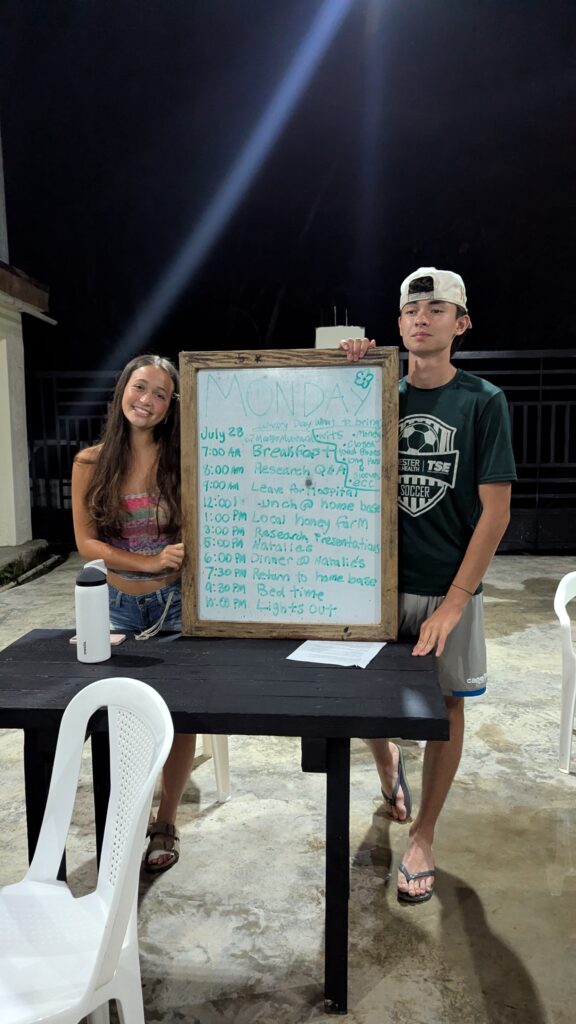 MONDAY
July 28
what to bring
7:00 AM Breakfast
8:00 AM Research Q&A
9:00 AM Leave for Hospital
12:00 Lunch @ home base
1:00 PM Local honey farm
3:00 PM Research Presentations
5:00 PM Natalie's
6:00 PM Dinner @ Natalie's
7:30 PM Return to home base
9:30 PM Bed time
10:00 PM Lights Out
• Money
• closed
toed shoes
long pants
sleeves
TSE
SOCCER